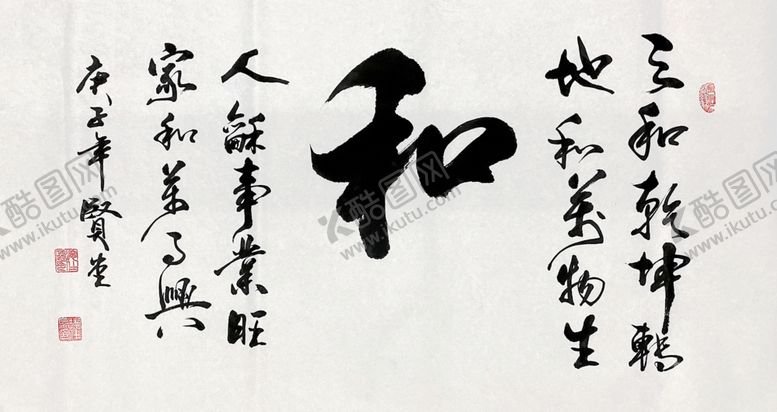 天和乾坤轉
地和萬物生
和
人龢事業旺
家和萬事興
庚子年賢堂
酷图网
www.ikutu.com